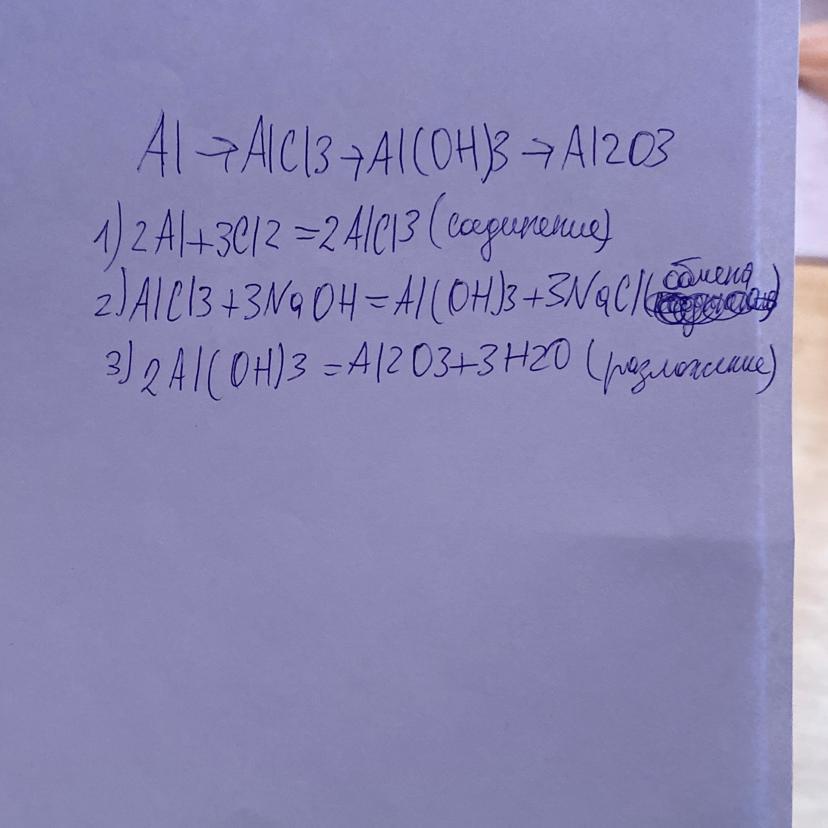 Al → AlCl3 → Al(OH)3 → Al2O3
1) 2Al + 3Cl2 = 2AlCl3 (соединение)
2) AlCl3 + 3NaOH = Al(OH)3 + 3NaCl (обмена)
3) 2Al(OH)3 = Al2O3 + 3H2O (разложение)